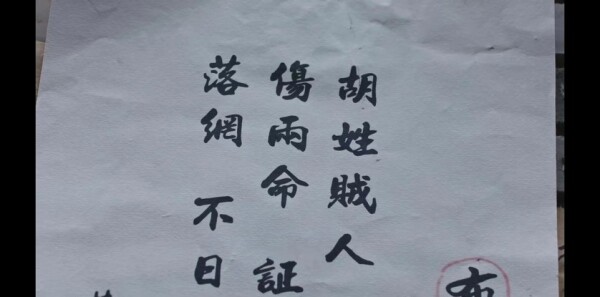 布
胡姓賊人
傷兩命 証
落網 不日